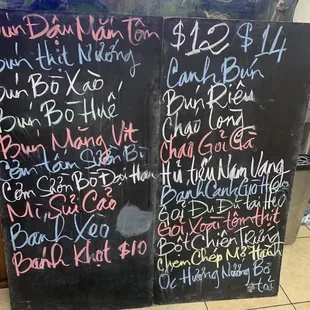 Bún Đậu Mắm Tôm
Bún Thịt Nướng
Bún Bò Xào
Bún Bò Huế
Bún Măng Vịt
Cơm Tấm Sườn Bì
Cơm Sườn Bò Đại Hàn
Mì, Sủi Cảo
Banh Xeo
Bánh Khọt $10
$12 $14
Canh Bún
Bún Riêu
Cháo Lòng
Cháo Gỏi Gà
Hủ tiếu Nam Vang
Banh Canh Giò Heo
Gỏi Đu Đủ tai Heo
Gỏi Xoài tôm thịt
Bột Chiên Trứng
Chem Chép Mỡ Hành
Ốc Hương Nướng Bơ
tỏi